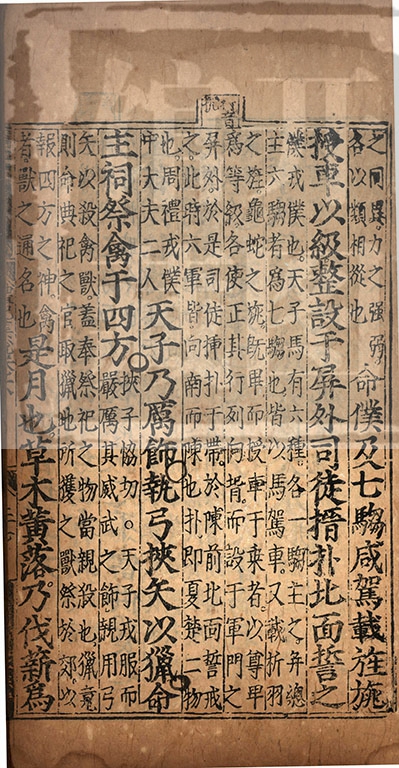 之同異力之强弱
各以類相從也
命僕及七騶咸駕載旌旐
授車以級整設于屏外司徒搢扑北面誓之
僕戎僕也天子馬有六種各一騶主之并總
主六騶者爲七騶也皆以馬駕車又載析羽
之旌龜蛇之旐旣畢而授車于乘者以尊卑
爲等級各使正其行列向背而設于軍門之
屏外於是司徒搢扑于帶於陳前北面誓戒
之此時六軍皆向南而陳也扑即夏楚二物
也周禮戎僕
中大夫二人
天子乃厲飾執弓挾矢以獵命
主祠祭禽于四方
挾子協切○天子戎服而
嚴厲其威武之飾親用弓
矢以殺禽獸蓋奉祭祀之物當親殺也獵竟
則命典祀之官取獵地所獲之獸祭於郊以
報四方之神禽
者獸之通名也
是月也草木黃落乃伐薪爲